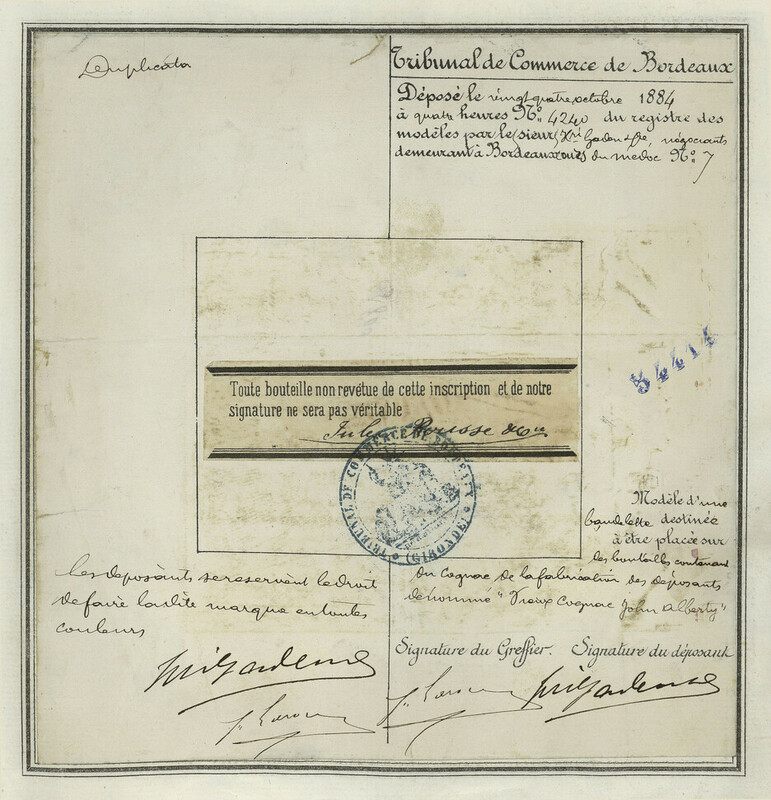 Duplicata
Tribunal de Commerce de Bordeaux
Déposé le vingt quatre octobre 1884
à quatre heures No. 4240 du registre des
modèles par le (sieur) Gaden négociants
demeurant à Bordeaux cours du medoc No. 7
54414
Toute bouteille non revétue de cette inscription et de notre
signature ne sera pas véritable
Jules Rousse & Cie
TRIBUNAL DE COMMERCE DE BORDEAUX (GIRONDE)
Modèle d'une
bandelette destinée
à être placée sur
les bouteilles contenant
du cognac de la fabrication des déposants
dénommé "Vieux Cognac John Alberty"
Les déposants se reservent le droit
de faire la dite marque en toutes
couleurs
Signature du Greffier. Signature du déposant